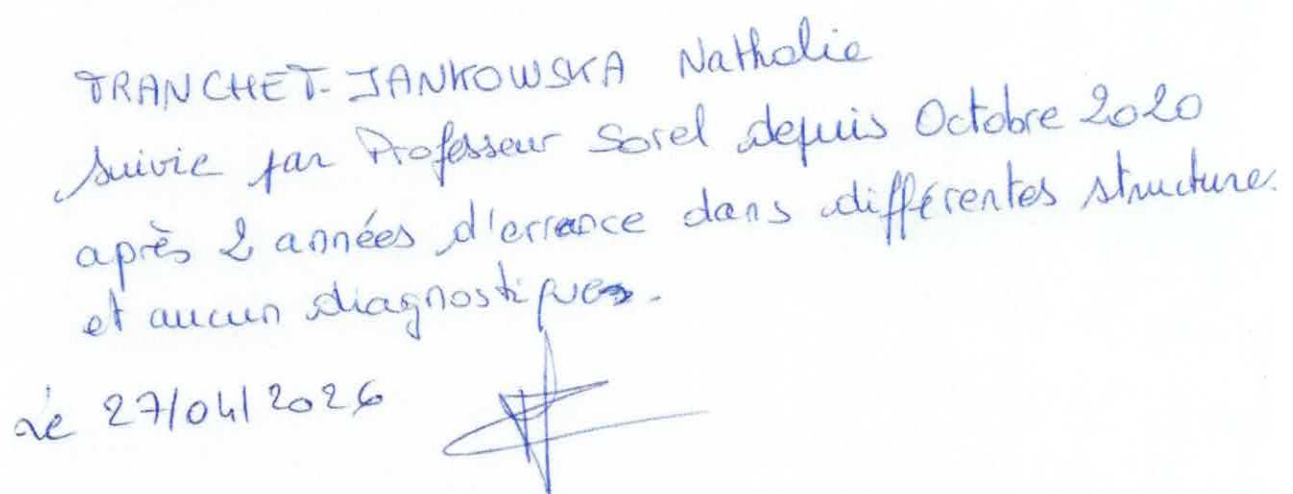 TRANCHET-JANKOWSKA Nathalie
suivie par Professeur Sorel depuis Octobre 2020
après 2 années d'errance dans différentes structure.
et aucun diagnostiques.
Le 27/04/2026